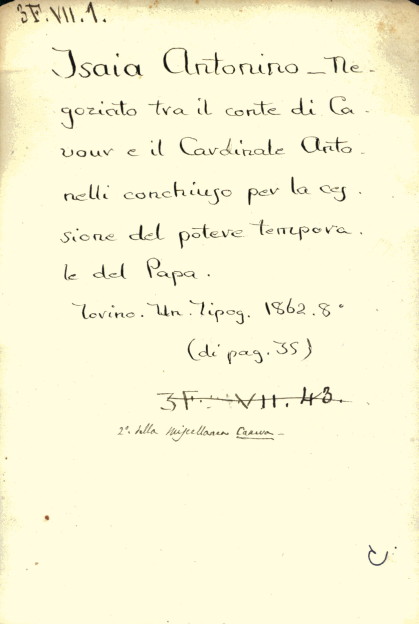 3F.VII.1.
Isaia Antonino — Ne-
goziato tra il conte di Ca-
vour e il Cardinale Anto-
nelli conchiuso per la ces-
sione del potere tempora-
le del Papa.
Torino. Un. Tipog. 1862. 8°
(di pag. 35)
3F. VII. 43.
2ª della Miscellanea